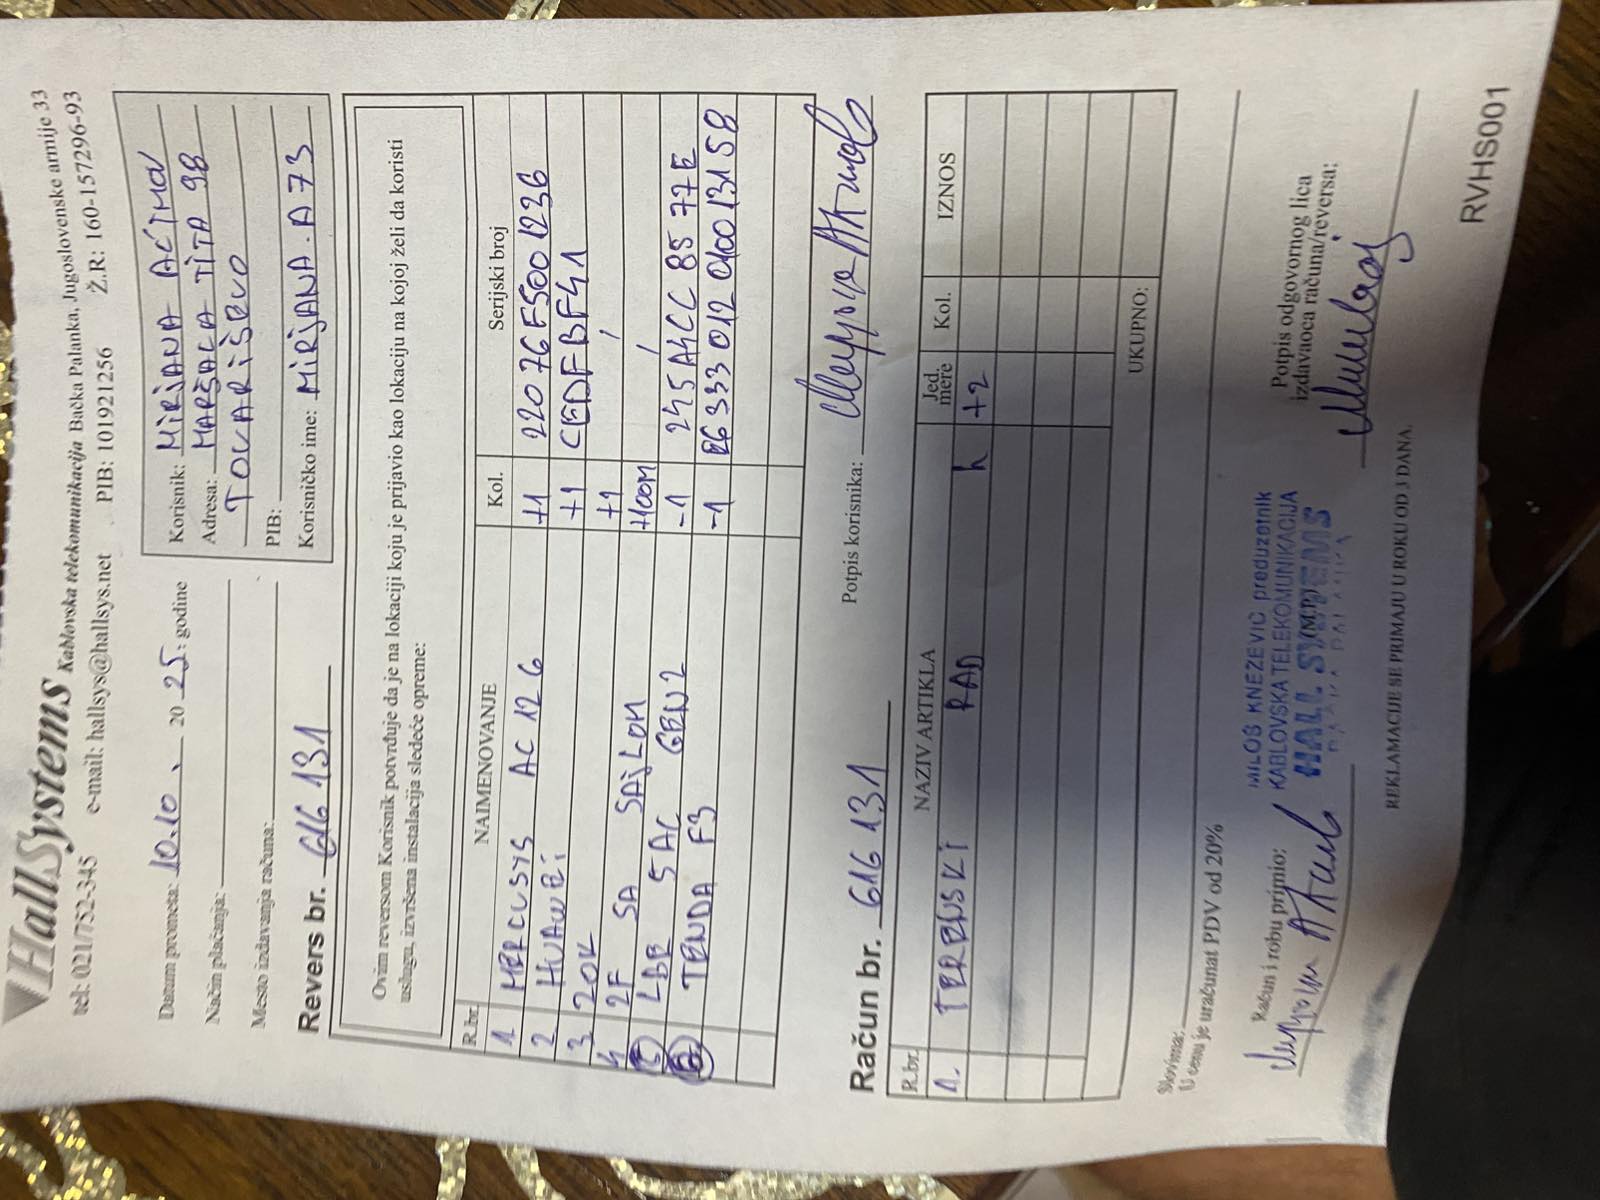 HallSystems Kablovska telekomunikacija Bačka Palanka, Jugoslovenske armije 33
tel: 021/752-345 e-mail: hallsys@hallsys.net PIB: 101921256 Ž.R: 160-157296-93
Datum prometa: 10.10. 2025. godine
Način plaćanja:
Mesto izdavanja računa:
Revers br. 616131
Korisnik: MIRJANA AĆIMOV
Adresa: MARŠALA TITA 98
TOVARIŠEVO
PIB:
Korisničko ime: MIRJANA.A73
Ovim reversom Korisnik potvrđuje da je na lokaciji koju je prijavio kao lokaciju na kojoj želi da koristi
uslugu, izvršena instalacija sledeće opreme:
R.br. NAIMENOVANJE Kol. Serijski broj
1 MERCUSYS AC 12G +1 22076F5001236
2 HUAWEI +1 CEDFBF41
3 ZOK +1 /
4 2F SA SAJLOM +100M /
5 LBE 5AC GEN2 -1 245A4CC8577E
6 TENDA F3 -1 E6333012040013158
Potpis korisnika:
Račun br. 616131
R.br. NAZIV ARTIKLA Jed. mere Kol. IZNOS
1. TERENSKI RAD h +2
UKUPNO:
Slovima:
U cenu je uračunat PDV od 20%
Račun i robu primio:
MILOŠ KNEZEVIĆ preduzetnik
KABLOVSKA TELEKOMUNIKACIJA
HALL SYSTEMS
BAČKA PALANKA
(M.P.)
Potpis odgovornog lica
izdavaoca računa/reversa:
REKLAMACIJE SE PRIMAJU U ROKU OD 3 DANA.
RVHS001